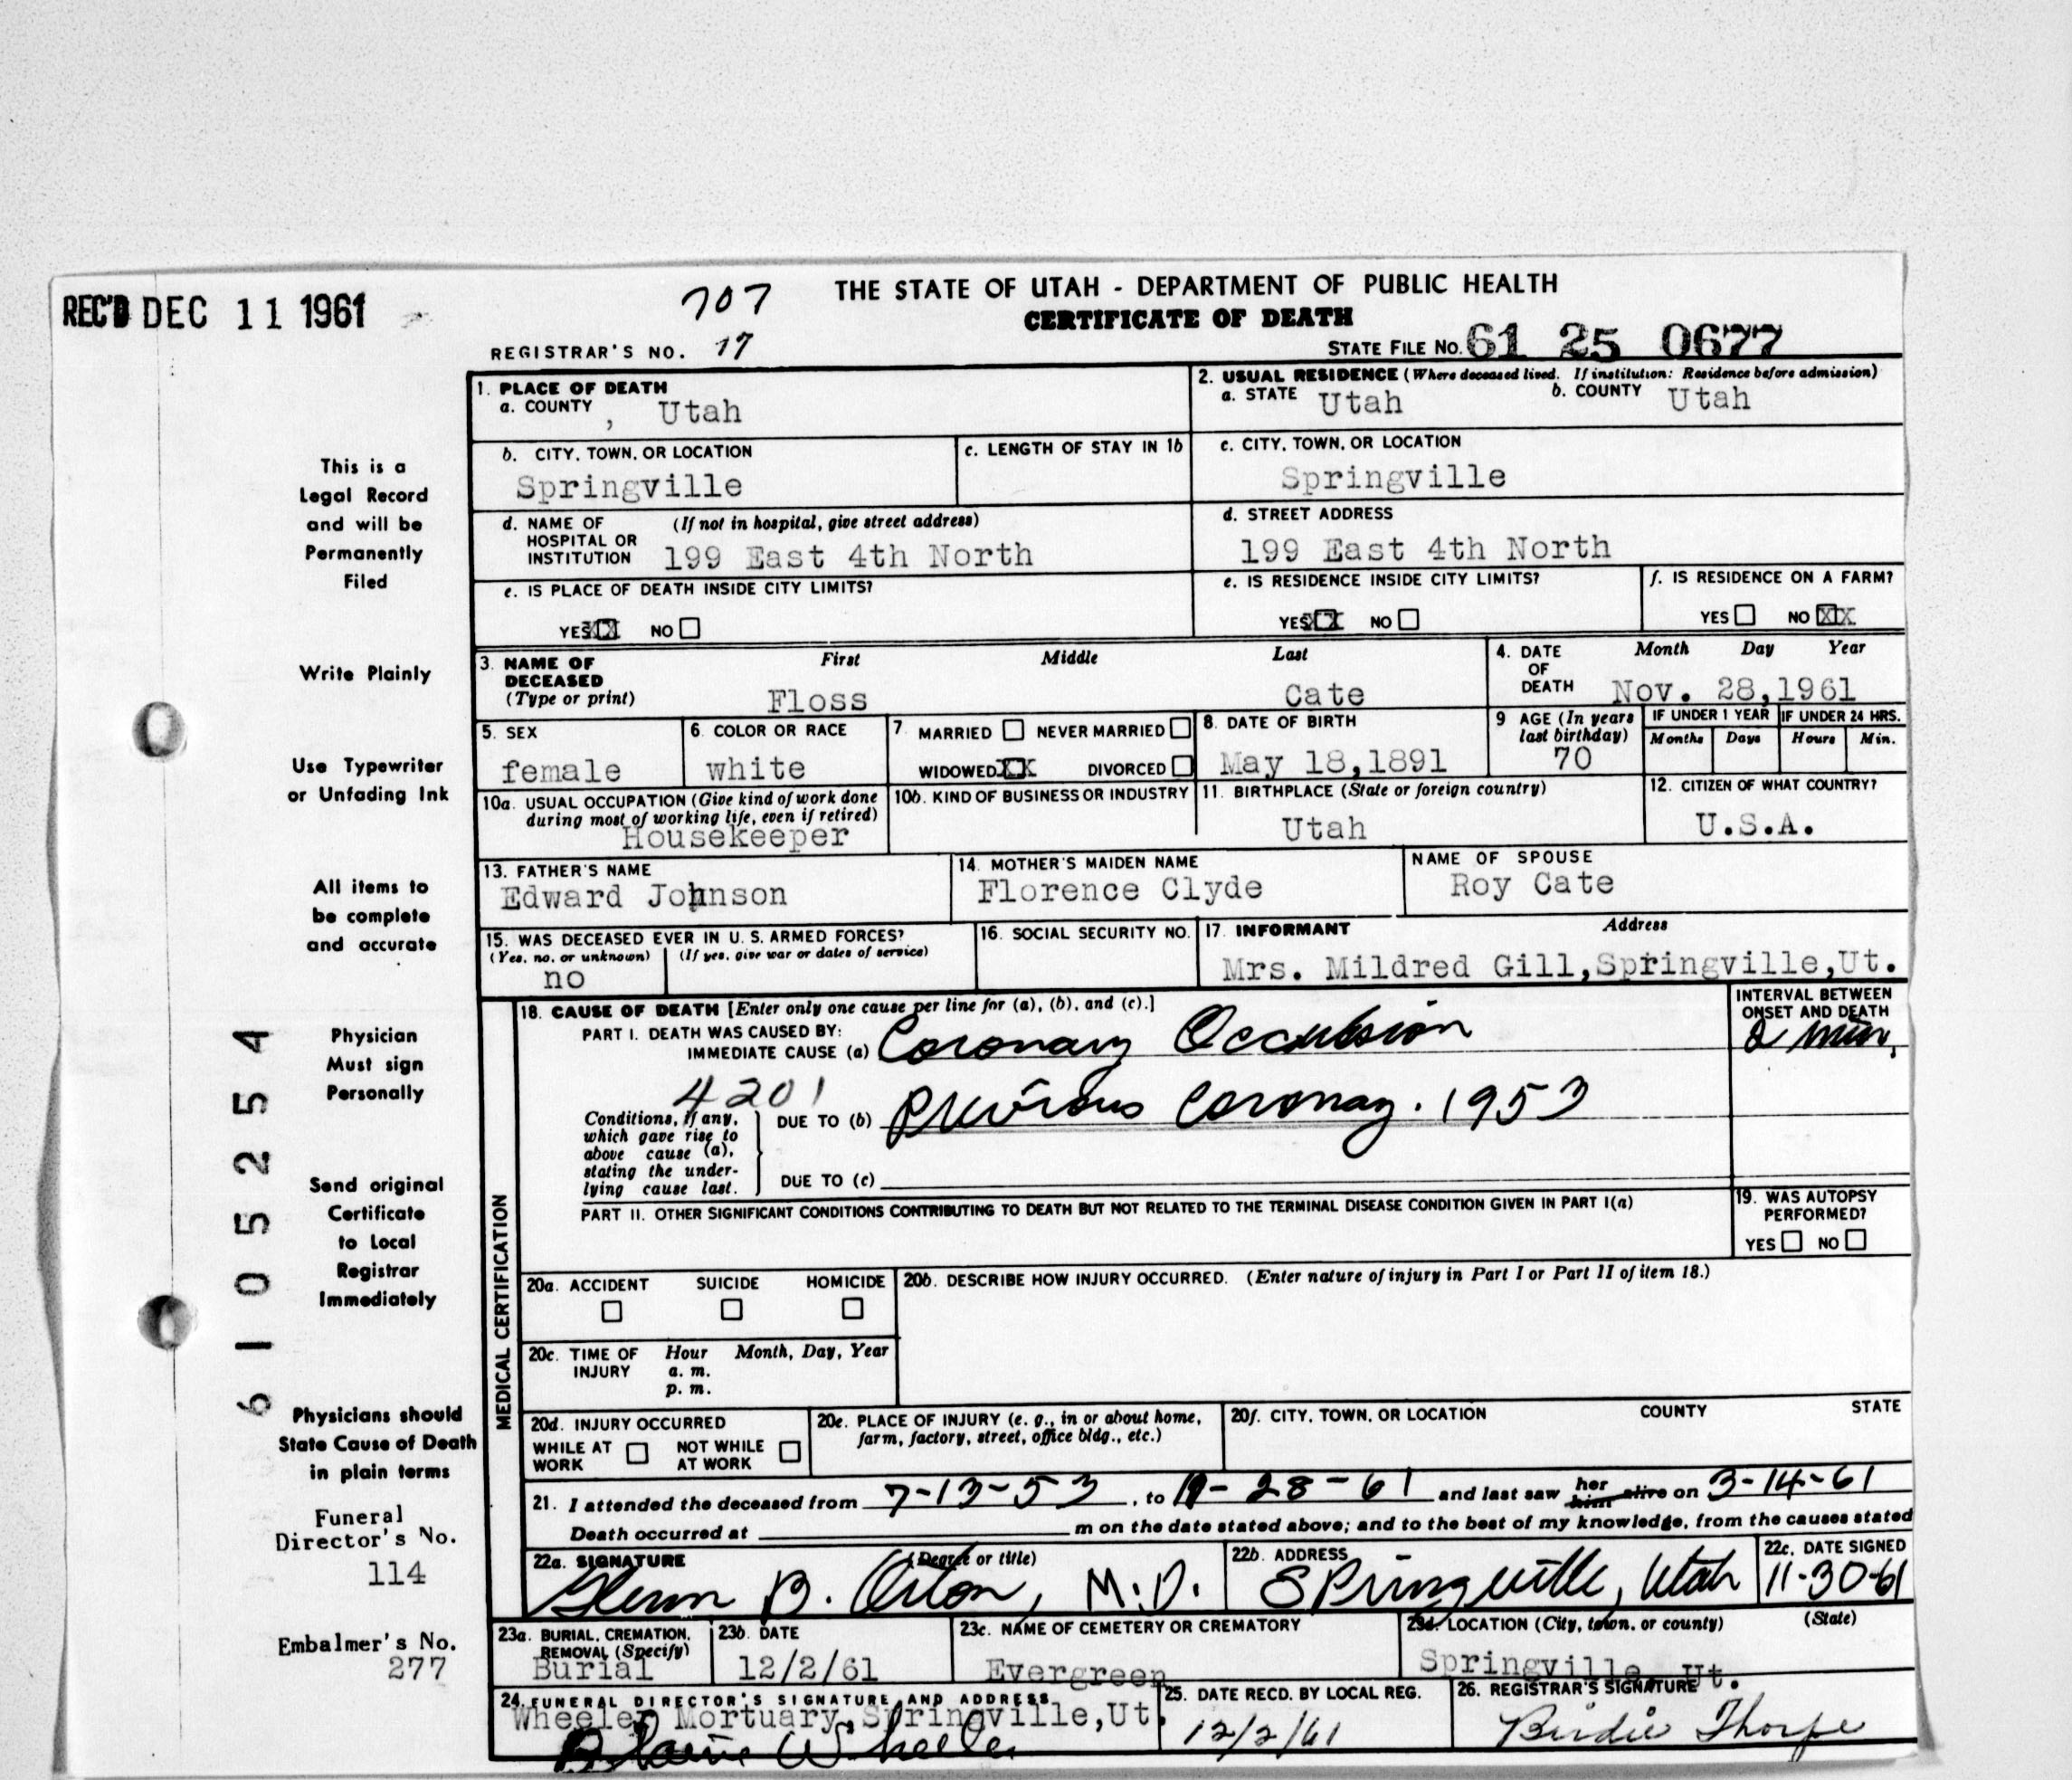 REC'D DEC 11 1961
707
THE STATE OF UTAH - DEPARTMENT OF PUBLIC HEALTH
CERTIFICATE OF DEATH
REGISTRAR'S NO. 17
STATE FILE NO. 61 25 0677
1. PLACE OF DEATH
a. COUNTY , Utah
2. USUAL RESIDENCE (Where deceased lived. If institution: Residence before admission)
a. STATE Utah b. COUNTY Utah
b. CITY, TOWN, OR LOCATION
Springville
c. LENGTH OF STAY IN 1b
c. CITY, TOWN, OR LOCATION
Springville
d. NAME OF HOSPITAL OR INSTITUTION (If not in hospital, give street address)
199 East 4th North
d. STREET ADDRESS
199 East 4th North
e. IS PLACE OF DEATH INSIDE CITY LIMITS?
YES XX NO
e. IS RESIDENCE INSIDE CITY LIMITS?
YES XX NO
f. IS RESIDENCE ON A FARM?
YES NO XX
3. NAME OF DECEASED (Type or print) First Middle Last
Floss Cate
4. DATE OF DEATH Month Day Year
Nov. 28,1961
5. SEX
female
6. COLOR OR RACE
white
7. MARRIED NEVER MARRIED
WIDOWED XX DIVORCED
8. DATE OF BIRTH
May 18,1891
9 AGE (In years last birthday)
70
IF UNDER 1 YEAR IF UNDER 24 HRS.
Months Days Hours Min.
10a. USUAL OCCUPATION (Give kind of work done during most of working life, even if retired)
Housekeeper
10b. KIND OF BUSINESS OR INDUSTRY
11. BIRTHPLACE (State or foreign country)
Utah
12. CITIZEN OF WHAT COUNTRY?
U.S.A.
13. FATHER'S NAME
Edward Johnson
14. MOTHER'S MAIDEN NAME
Florence Clyde
NAME OF SPOUSE
Roy Cate
15. WAS DECEASED EVER IN U. S. ARMED FORCES?
(Yes, no, or unknown) (If yes, give war or dates of service)
no
16. SOCIAL SECURITY NO.
17. INFORMANT Address
Mrs. Mildred Gill,Springville,Ut.
MEDICAL CERTIFICATION
18. CAUSE OF DEATH [Enter only one cause per line for (a), (b), and (c).]
INTERVAL BETWEEN ONSET AND DEATH
PART I. DEATH WAS CAUSED BY:
IMMEDIATE CAUSE (a) Coronary Occlusion
2 min.
4201
Conditions, if any, which gave rise to above cause (a), stating the underlying cause last.
DUE TO (b) Previous Coronary. 1953
DUE TO (c)
PART II. OTHER SIGNIFICANT CONDITIONS CONTRIBUTING TO DEATH BUT NOT RELATED TO THE TERMINAL DISEASE CONDITION GIVEN IN PART I(a)
19. WAS AUTOPSY PERFORMED?
YES NO
20a. ACCIDENT SUICIDE HOMICIDE
20b. DESCRIBE HOW INJURY OCCURRED. (Enter nature of injury in Part I or Part II of item 18.)
20c. TIME OF INJURY Hour Month, Day, Year
a. m.
p. m.
20d. INJURY OCCURRED
WHILE AT WORK NOT WHILE AT WORK
20e. PLACE OF INJURY (e. g., in or about home, farm, factory, street, office bldg., etc.)
20f. CITY, TOWN, OR LOCATION COUNTY STATE
21. I attended the deceased from 7-13-53, to 11-28-61 and last saw her him alive on 3-14-61
Death occurred at m on the date stated above; and to the best of my knowledge, from the causes stated
22a. SIGNATURE (Degree or title)
Glenn B. Orton, M.D.
22b. ADDRESS
Springville, Utah
22c. DATE SIGNED
11-30-61
23a. BURIAL, CREMATION, REMOVAL (Specify)
Burial
23b. DATE
12/2/61
23c. NAME OF CEMETERY OR CREMATORY
Evergreen
23d. LOCATION (City, town, or county) (State)
Springville, Ut.
24. FUNERAL DIRECTOR'S SIGNATURE AND ADDRESS
Wheeler Mortuary,Springville,Ut.
Blaine Wheeler
25. DATE RECD. BY LOCAL REG.
12/2/61
26. REGISTRAR'S SIGNATURE
Birdie Thorpe
This is a
Legal Record
and will be
Permanently
Filed
Write Plainly
Use Typewriter
or Unfading Ink
All items to
be complete
and accurate
Physician
Must sign
Personally
Send original
Certificate
to Local
Registrar
Immediately
Physicians should
State Cause of Death
in plain terms
Funeral
Director's No.
114
Embalmer's No.
277
6105254